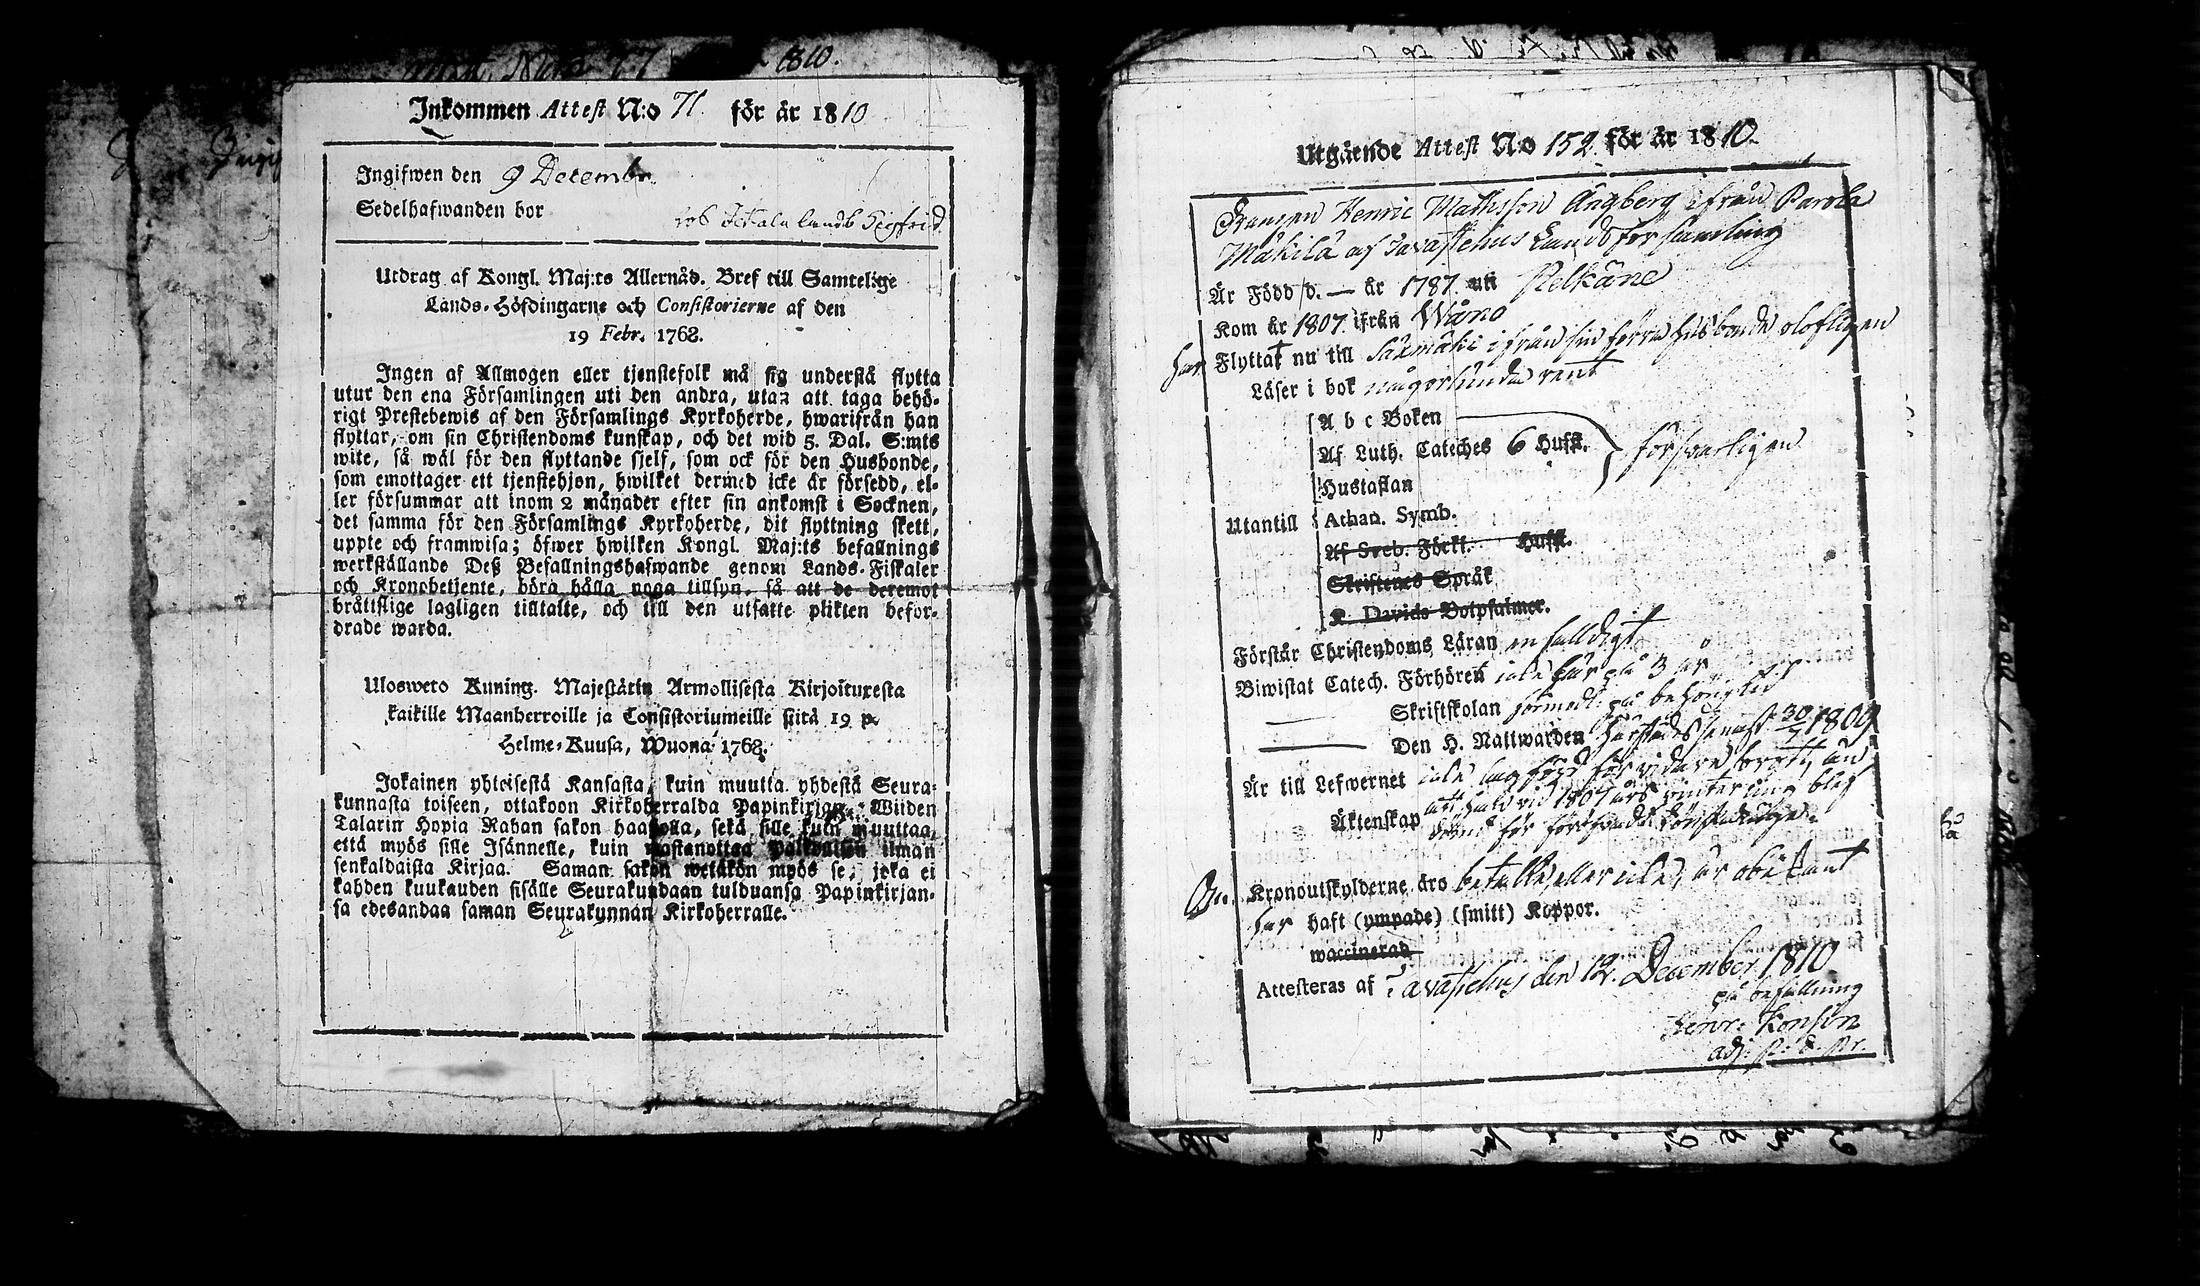 1810.
Inkommen Attest N:o 71. för år 1810
Ingifwen den 9 Decembr.
Sedelhafwanden bor
hos Sigfrid.
Utdrag af Kongl. Maj:ts Allernåd. Bref till Samtelige
Lands-Höfdingarne och Consistorierne af den
19 Febr. 1768.
Ingen af Allmogen eller tjenstefolk må sig understå flytta
utur den ena Församlingen uti den andra, utan att taga behö-
rigt Prestebewis af den Församlings Kyrkoherde, hwarifrån han
flyttar, om sin Christendoms kunskap, och det wid 5. Dal. S:mts
wite, så wäl för den flyttande sjelf, som ock för den Husbonde,
som emottager ett tjenstehjon, hwilket dermed icke är försedd, el-
ler försummar att inom 2 månader efter sin ankomst i Socknen,
det samma för den Församlings Kyrkoherde, dit flyttning skett,
uppte och framwisa; öfwer hwilken Kongl. Maj:ts befallnings
werkställande Deß Befallningshafwande genom Lands-Fiskaler
och Kronobetjente, böra hålla noga tillsyn, så att de deremot
bråttslige lagligen tilltalte, och till den utsatte plikten befor-
drade warda.
Ulosweto Kuning. Majestätin Armollisesta Kirjoituxesta
kaikille Maanherroille ja Consistoriumeille siitä 19 p.
Helme-Kuusa, Wuona 1768.
Jokainen yhteisestä Kansasta, kuin muutta yhdestä Seura-
kunnasta toiseen, ottakoon Kirkoherralda Papinkirjan, Wiiden
Talarin Hopia Rahan sakon haastolla, sekä sille kuin muuttaa,
että myös sille Isännelle, kuin wastanottaa Palkollisen ilman
senkaldaista Kirjaa. Saman sakon wetäkön myös se, joka ei
kahden kuukauden sisälle Seurakundaan tulduansa Papinkirjan-
sa edesandaa saman Seurakunnan Kirkoherralle.
Utgående Attest No 152. för år 1810.
Drängen Henric Mathsson Ångberg ifrån Parola
Mäkilä af Tavastehus Landsförsamling
Är Född d. — år 1787. uti Pelkäne
Kom år 1807. ifrån Wåno
har Flyttat nu till Säxmäki ifrån sin förra husbonde olofligen
Läser i bok någorlunda rent
A b c Boken
Af Luth. Cateches 6 Hufst. försvarligen
Hustaflan
Utantill Athan. Symb.
Af Sveb. Förkl. Hufst.
Skriftenes Språk
K. Davids Botpsalmer.
Förstår Christendoms Läran enfalldigt
Biwistat Catech. Förhören icke här på 3 år
Skriftskolan på behörig tid
Den H. Nattwarden härstädes senast 30/7 1809
Är till Lefwernet icke lagförd för vidare brott, än
Äktenskap att han vid 1807 års vintering blef
dömd för
Kronoutskylderne äro betalte, eller icke, är obekant
har haft (ympade) (smitt) Koppor.
waccinerad
Attesteras af Tavastehus den 12. December 1810
på befallning
Henr. Konsin
adj. p. d. pr.